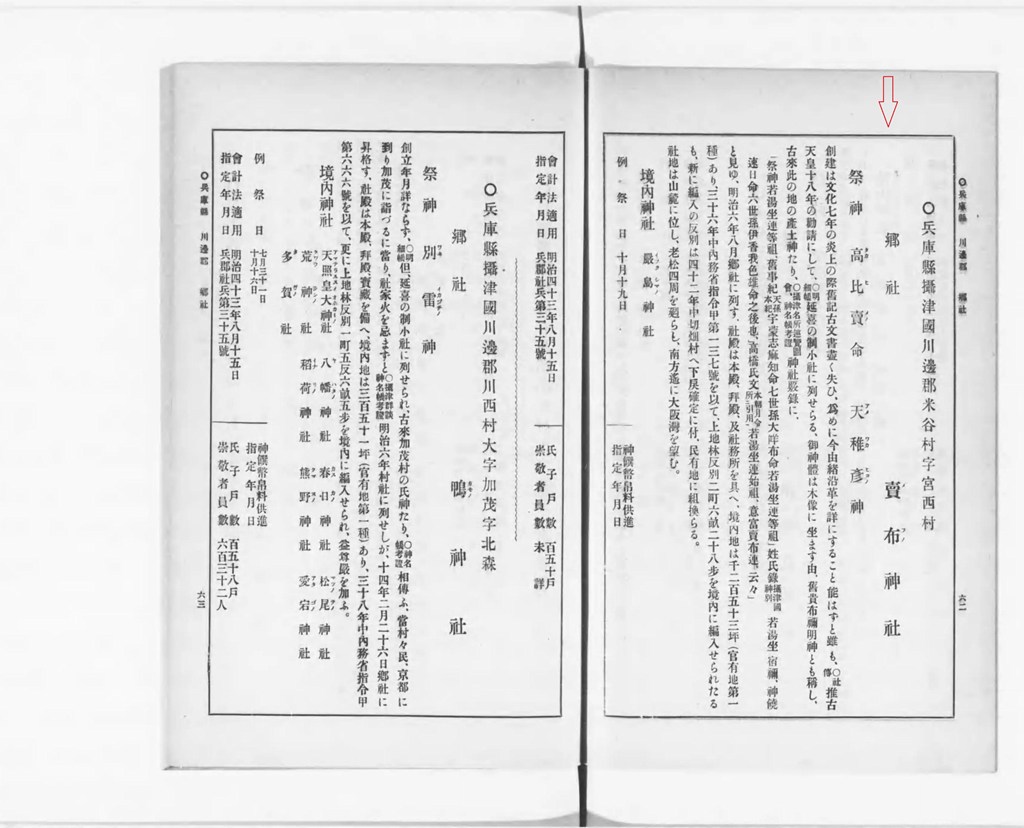 ○兵庫縣 川邊郡 鄕社
六二
○兵庫縣攝津國川邊郡米谷村字宮西村
鄕社 賣布神社
祭神 高比賣命 天稚彥神
創建は文化七年の炎上の際舊記古文書盡く失ひ、爲めに今由緖沿革を詳にすること能はずと雖も、○社傳 推古
天皇十八年の勸請にして、○明細帳 延喜の制小社に列せらる、御神體は木像に坐ます由、舊貴布禰明神とも稱し、
古來此の地の產土神たり、○攝津名所巡覽圖會、神名帳考證 神社覈錄に、
「祭神若湯坐連等祖、舊事紀天孫本紀 宇蒙志麻知命七世孫大咩布命若湯坐連等祖」姓氏錄攝津國神別 若湯坐宿禰、神饒
速日命六世孫伊香我色雄命之後也、高橋氏文本朝月令所引用 若湯坐連始祖、意富賣布連、云々」
と見ゆ、明治六年八月鄕社に列す、社殿は本殿、拜殿、及社務所を具へ、境內地は千二百五十三坪(官有地第一
種)あり、三十六年中內務省指令甲第一三七號を以て、上地林反別二町六畝二十八步を境內に編入せられたる
も、新に編入の反別は四十二年中切畑村へ下戾確定に付、民有地に組換らる。
社地は山麓に位し、老松四周を廻らし、南方遙に大阪灣を望む。
境內神社 嚴島神社
例祭日 十月十九日
神饌幣帛料供進指定年月日
會計法適用指定年月日 明治四十三年八月十五日 兵郡社兵第三十五號
氏子戶數 百五十戶
崇敬者員數 未詳
○兵庫縣攝津國川邊郡川西村大字加茂字北森
鄕社 鴨神社
祭神 別雷神
創立年月詳ならず、○明細帳 但、延喜の制小社に列せられ、古來加茂村の氏神たり、○神名帳考證 相傳ふ、當村々民、京都に
到り加茂に詣づるに當り、社家火を忌ますと、○攝津群談、神名帳考證 明治六年村社に列せしが、十四年二月二十六日鄕社に
昇格す、社殿は本殿、拜殿、寶藏を備へ、境內地は三百五十一坪(官有地第一種)あり、三十八年中內務省指令甲
第六六六號を以て、更に上地林反別一町五反六畝五步を境內に編入せられ、益尊嚴を加ふ。
境內神社 天照皇大神社 八幡神社 春日神社 松尾神社
荒神社 稻荷神社 熊野神社 愛宕神社
多賀社
例祭日 七月三十一日 十月十六日
神饌幣帛料供進指定年月日
會計法適用指定年月日 明治四十三年八月十五日 兵郡社兵第三十五號
氏子戶數 百五十八戶
崇敬者員數 六百三十二人
○兵庫縣 川邊郡 鄕社
六三